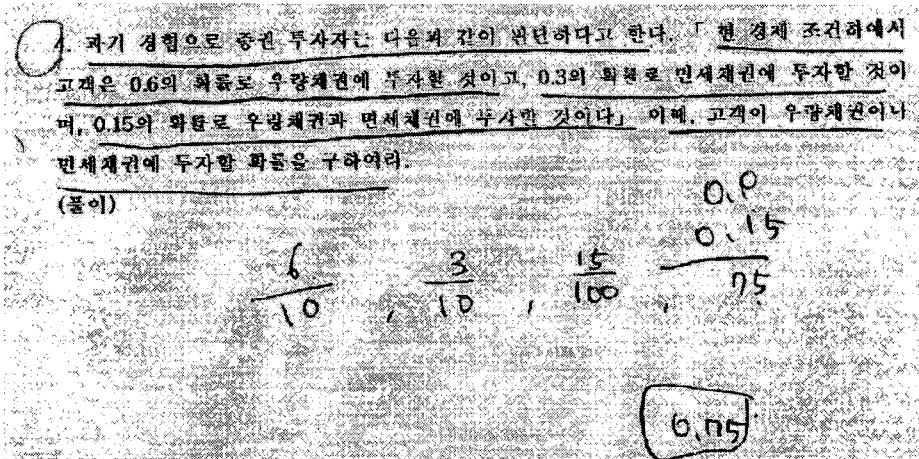 1. 과거 경험으로 증권 투자자는 다음과 같이 판단하다고 한다. 「현 경제 조건하에서
고객은 0.6의 확률로 우량채권에 투자할 것이고, 0.3의 확률로 면세채권에 투자할 것이
며, 0.15의 확률로 우량채권과 면세채권에 투자할 것이다」 이때, 고객이 우량채권이나
면세채권에 투자할 확률을 구하여라.
(풀이)
0.9
0.15
6/10, 3/10, 15/100, 75
0.75